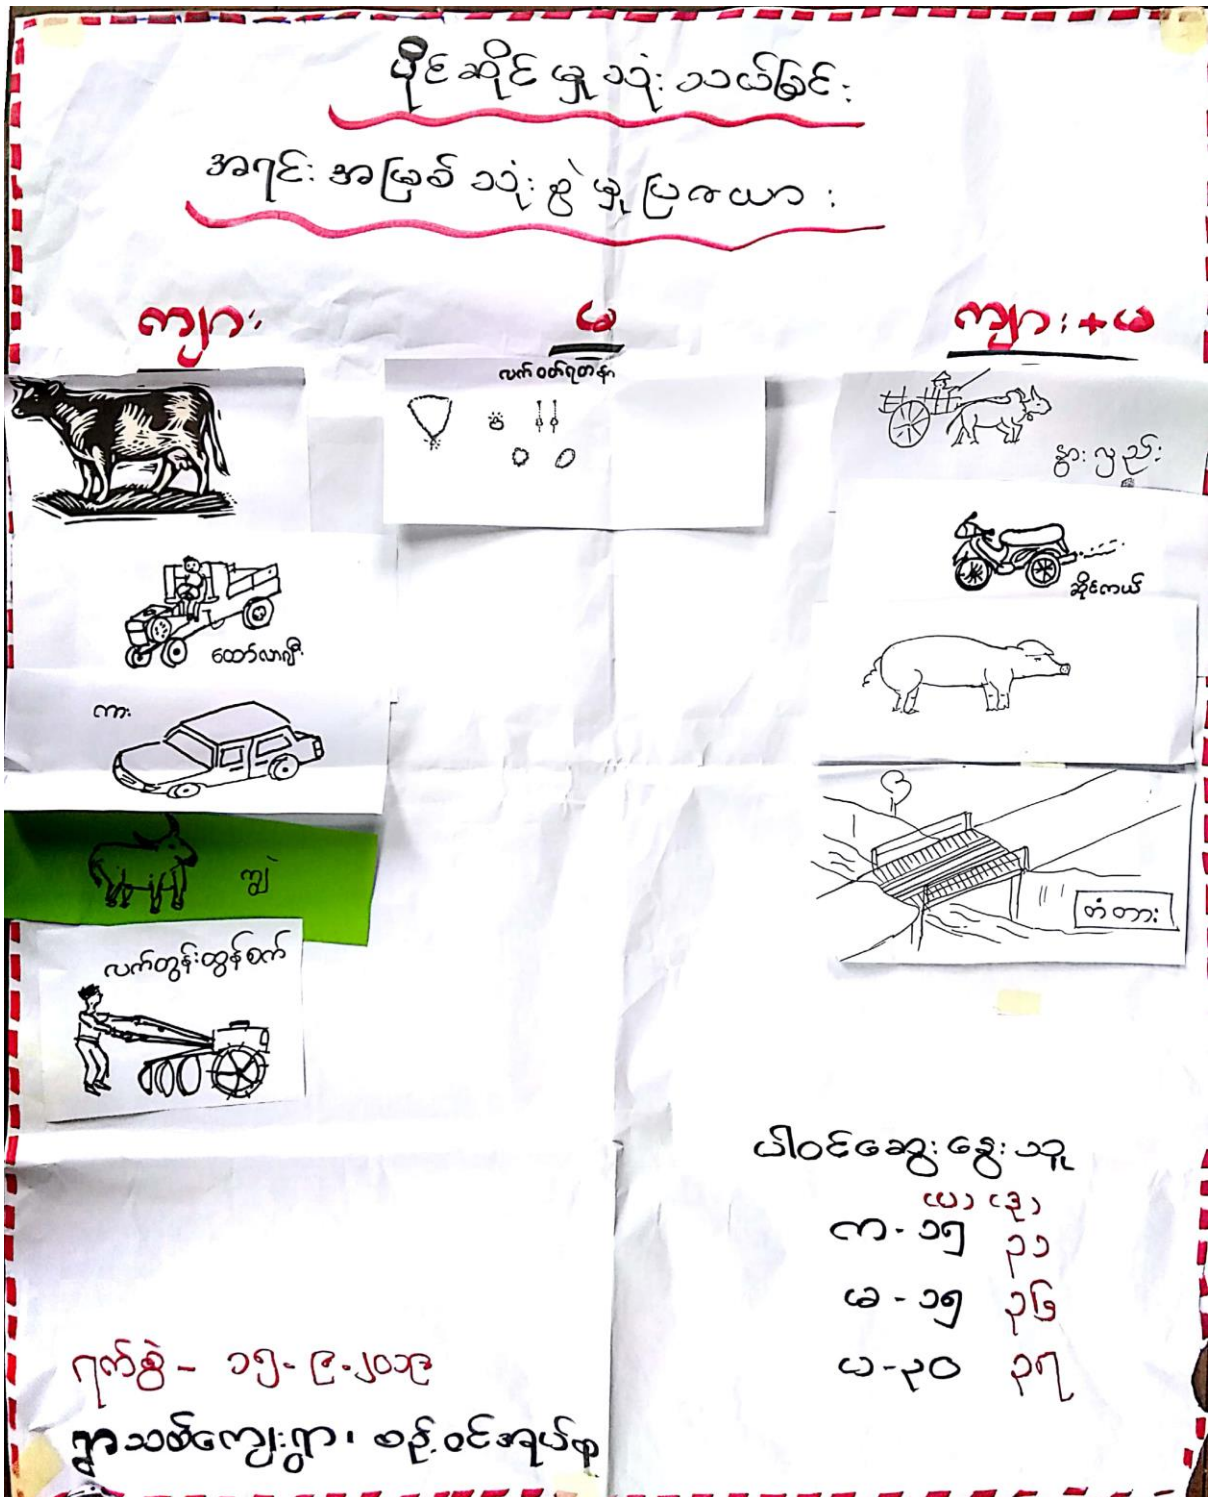 ပိုင်ဆိုင်မှုသုံးသပ်ခြင်း
အရင်းအမြစ်သုံးစွဲမှုပြဇယား
ကျား
မ
ကျား+မ
လက်ဝတ်ရတနာ
နွားလှည်း
ဆိုင်ကယ်
ထော်လာဂျီ
ကား
ကျွဲ
တံတား
လက်တွန်းထွန်စက်
ပါဝင်ဆွေးနွေးသူ
(ပ) (ဒု)
က - ၁၅ ၃၁
မ - ၁၅ ၃၆
ပ - ၃၀ ၃၇
ရက်စွဲ - ၁၅-၉-၂၀၁၉
ရွာသစ်ကျေးရွာ၊ စဉ့်ဝင်အုပ်စု